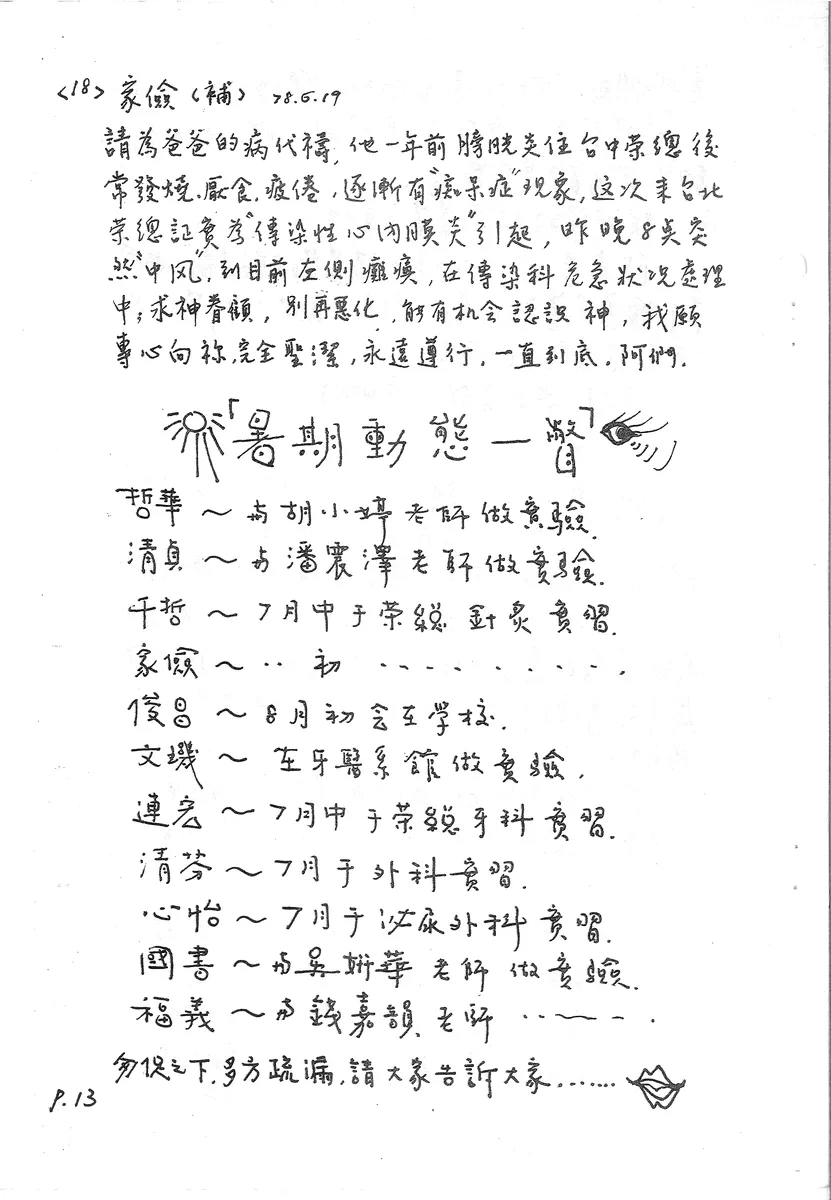 <18> 家儉(補) 78.6.19
請為爸爸的病代禱, 他一年前膀胱炎住台中荣總後
常發燒.厭食.疲倦,逐漸有"痴呆症"現象,這次來台北
荣總証實為"傳染性心內膜炎"引起, 昨晚8点突
然"中风",到目前左側癱瘓,在傳染科危急狀况處理
中;求神眷顧, 別再惡化,能有机会認識神, 我願
專心向祢,完全聖潔,永遠遵行,一直到底.阿們.
「暑期動態一瞥」
哲華~与胡小婷老師做實驗.
清貞~与潘震澤老師做實驗.
千哲~7月中于荣總針灸實習.
家儉~‥初‥‥‥‥.
俊昌~8月初会在學校.
文璣~在牙醫系館做實驗.
連宏~7月中于荣總牙科實習.
清芬~7月于外科實習.
心怡~7月于泌尿外科實習.
國書~与吴妍華老師做實驗.
福義~与錢嘉韻老師‥~~-.
匆促之下,多方疏漏,請大家告訴大家.......
P.13